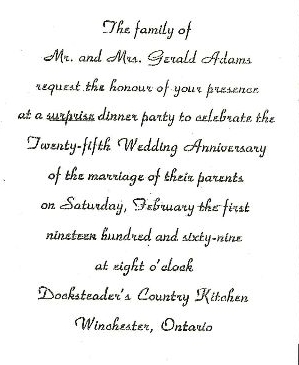 The family of
Mr. and Mrs. Gerald Adams
request the honour of your presence
at a surprise dinner party to celebrate the
Twenty-fifth Wedding Anniversary
of the marriage of their parents
on Saturday, February the first
nineteen hundred and sixty-nine
at eight o'clock
Docksteader's Country Kitchen
Winchester, Ontario